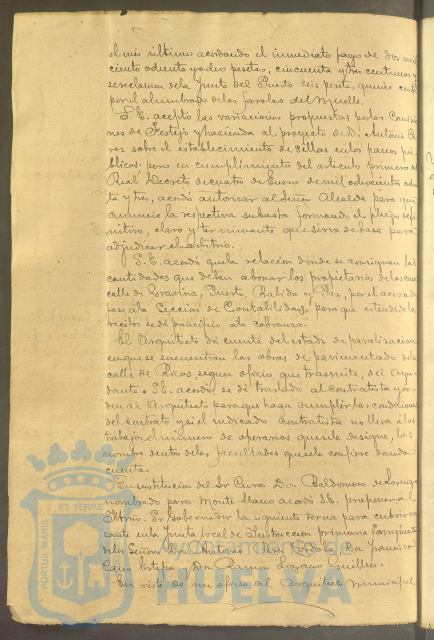 el mes último acordando el inmediato pago de dos mil
ciento ochenta y dos pesetas, cincuenta y tres centimos y
se reclamen de la Junta del Puerto seis pesetas, quince cent
por el alumbrado de las farolas del Muelle.
S.E. aceptó las variaciones propuestas por las Comisio
nes de Festejos y hacienda al proyecto de D. Antonio
rez sobre el establecimiento de sillas en los paseos pú
blicos; pero en cumplimiento del artículo primero del
Real Decreto de cuatro de Enero de mil ochocientos ochen
ta y tres, acordó autorizar al Señor Alcalde para que
anuncie la respectiva subasta formando el pliego defi
nitivo, claro y terminante que sirva de base para
adjudicar el arbitrio.
S.E. acordó que la relacion donde se consignan las
cantidades que deben abonar los propietarios de las casas
calle de Gravina, Puerto, Rabida y por el acerado
pase á la Seccion de Contabilidad, para que estendido los
recibos se dé principio á la cobranza.
El Arquitecto dá cuenta del estado de paralizacion
en que se encuentran las obras de pavimentado de la
calle de Ricos segun oficio que trasmite, del Ayu
dante. S.E. acordó se dé traslado al contratista y or
den al Arquitecto para que haga cumplir las condiciones
del contrato y si el indicado contratista no lleva á los
trabajos el número de operarios que se le designe, los
nombre dentro de las facultades que se le confiere dando
cuenta.
En sustitucion del Sr Cura Don Baldomero de Lorenzo
nombrado para acordó S.E. proponer al
Iltmo. Sr Gobernador la siguiente terna para cubrir su va
cante en la Junta local de Instruccion primaria
de los Señores Dn Antonio Dn Francisco
y Don Ramon Lozano Guillen.
En vista de un oficio del Arquitecto Municipal
PORTUS MARIS
ET TERRAE
Ayuntamiento de
HUELVA